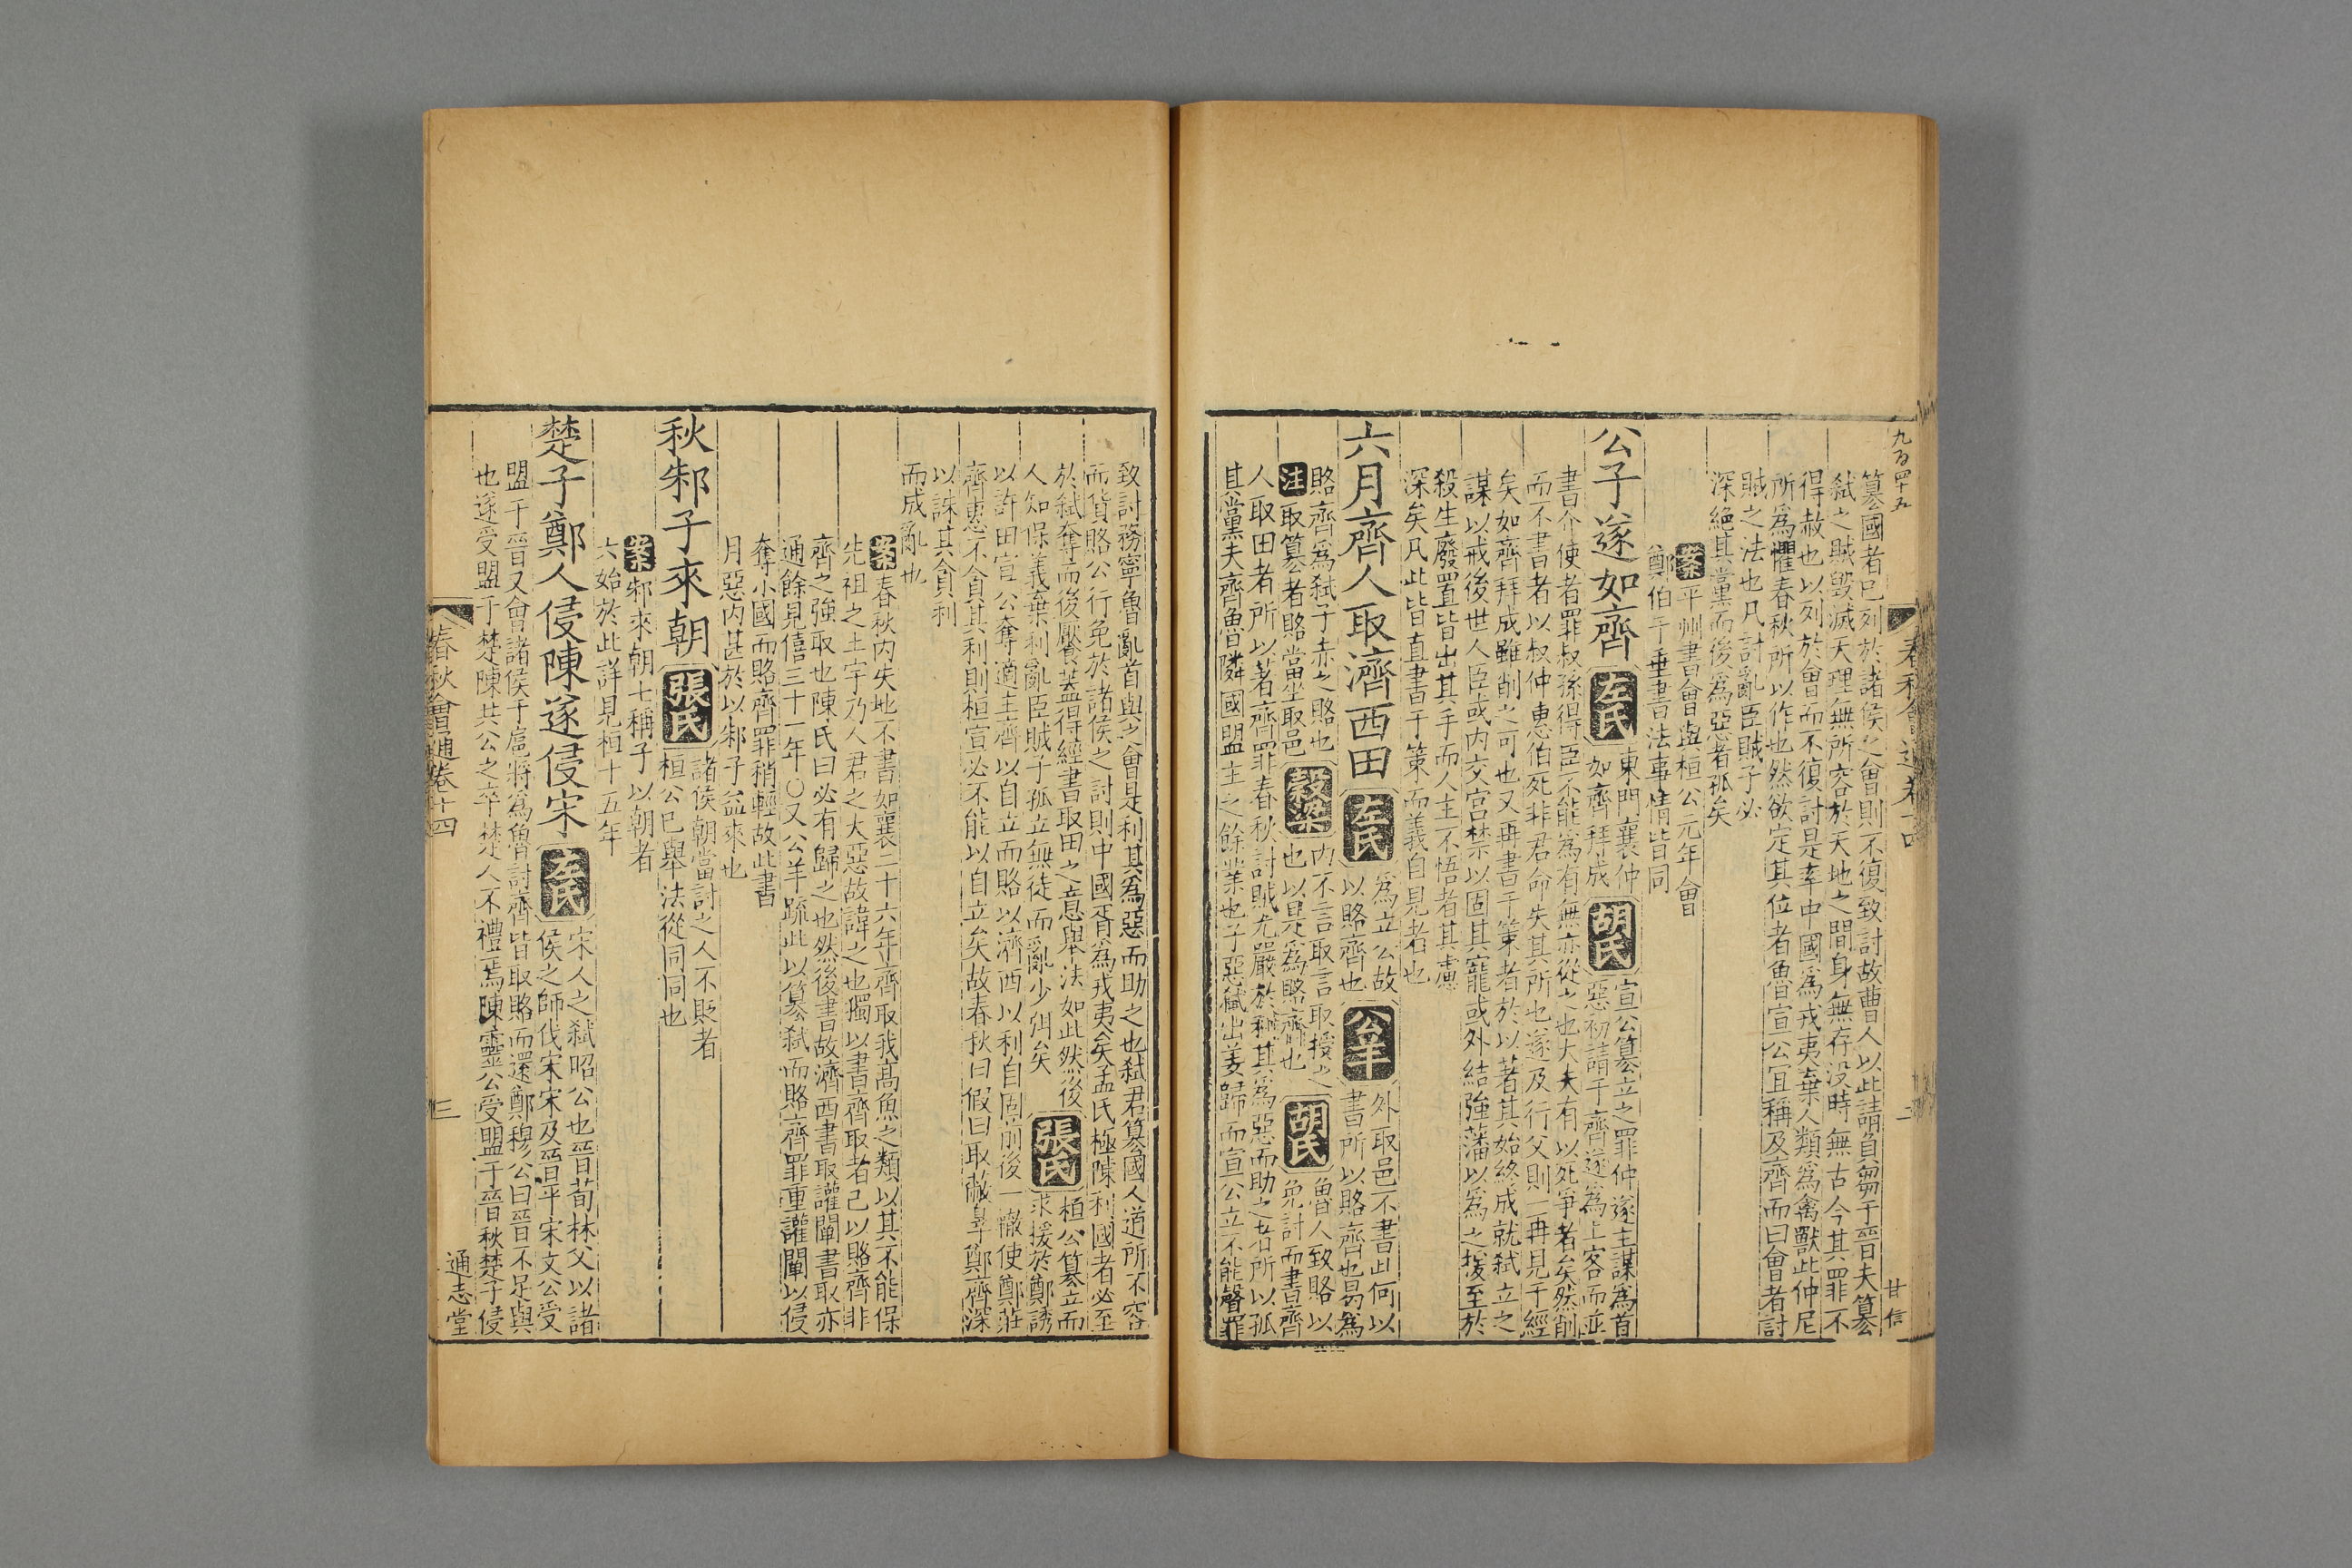 九百四十五
春秋會通卷十四
二
甘信
篡國者已列於諸侯之會則不復致討故曹人以此請負芻于晉夫篡
弑之賊毀滅天理無所容於天地之間身無存没時無古今其罪不
得赦也以列於會而不復討是率中國爲戎夷棄人類爲禽獸此仲尼
所爲懼春秋所以作也然欲定其位者魯宣公宜稱及齊而曰會者討
賊之法也凡討亂臣賊子必
深絶其黨而後爲惡者孤矣
案平州書會與桓公元年會
鄭伯于垂書法事情皆同
公子遂如齊
左氏
東門襄仲
如齊拜成
胡氏
宣公篡立之罪仲遂主謀爲首
惡初請于齊遂爲上客而並
書介使者罪叔孫得臣不能爲有無亦從之也大夫有以死爭者矣然削
而不書者以叔仲惠伯死非君命失其所也遂及行父則一再見于經
矣如齊拜成雖削之可也又再書于策者於以著其始終成就弑立之
謀以戒後世人臣或内交宫禁以固其寵或外結強藩以爲之援至於
殺生廢置皆出其手而人主不悟者其慮
深矣凡此皆直書于策而義自見者也
六月齊人取濟西田
左氏
爲立公故
以賂齊也
公羊
外取邑不書此何以
書所以賂齊也曷爲
賂齊爲弑子赤之賂也
注取篡者賂當坐取邑
穀梁
内不言取言取授之
也以是爲賂齊也
胡氏
魯人致賂以
免討而書齊
人取田者所以著齊罪春秋討賊尤嚴於利其爲惡而助之者所以孤
其黨夫齊魯隣國盟主之餘業也子惡弑出姜歸而宣公立不能聲罪
致討務寧魯亂首與之會是利其爲惡而助之也弑君篡國人道所不容
而貨賂公行免於諸侯之討則中國胥爲戎夷矣孟氏極陳利國者必至
於弑奪而後饜蓋得經書取田之意舉法如此然後
人知保義棄利亂臣賊子孤立無徒而亂少弭矣
張氏
桓公篡立而
求援於鄭誘
以許田宣公奪適主齊以自立而賂以濟西以利自固前後一轍使鄭莊
齊惠不貪其利則桓宣必不能以自立矣故春秋曰假曰取蔽辜鄭齊深
以誅其貪利
而成亂也
案春秋内失地不書如襄二十六年齊取我高魚之類以其不能保
先祖之土宇乃人君之大惡故諱之也獨以書齊取者己以賂齊非
齊之強取也陳氏曰必有歸之也然後書故濟西書取讙闡書取亦
通餘見僖三十一年〇又公羊疏此以篡弑而賂齊罪重讙闡以侵
奪小國而賂齊罪稍輕故此書
月惡内甚於以邾子益來也
秋邾子來朝
張氏
諸侯朝當討之人不貶者
桓公已舉法從同同也
案邾來朝七稱子以朝者
六始於此詳見桓十五年
楚子鄭人侵陳遂侵宋
左氏
宋人之弑昭公也晉荀林父以諸
侯之師伐宋宋及晉平宋文公受
盟于晉又會諸侯于扈將爲魯討齊皆取賂而還鄭穆公曰晉不足與
也遂受盟于楚陳共公之卒楚人不禮焉陳靈公受盟于晉秋楚子侵
春秋會通卷十四
三
通志堂